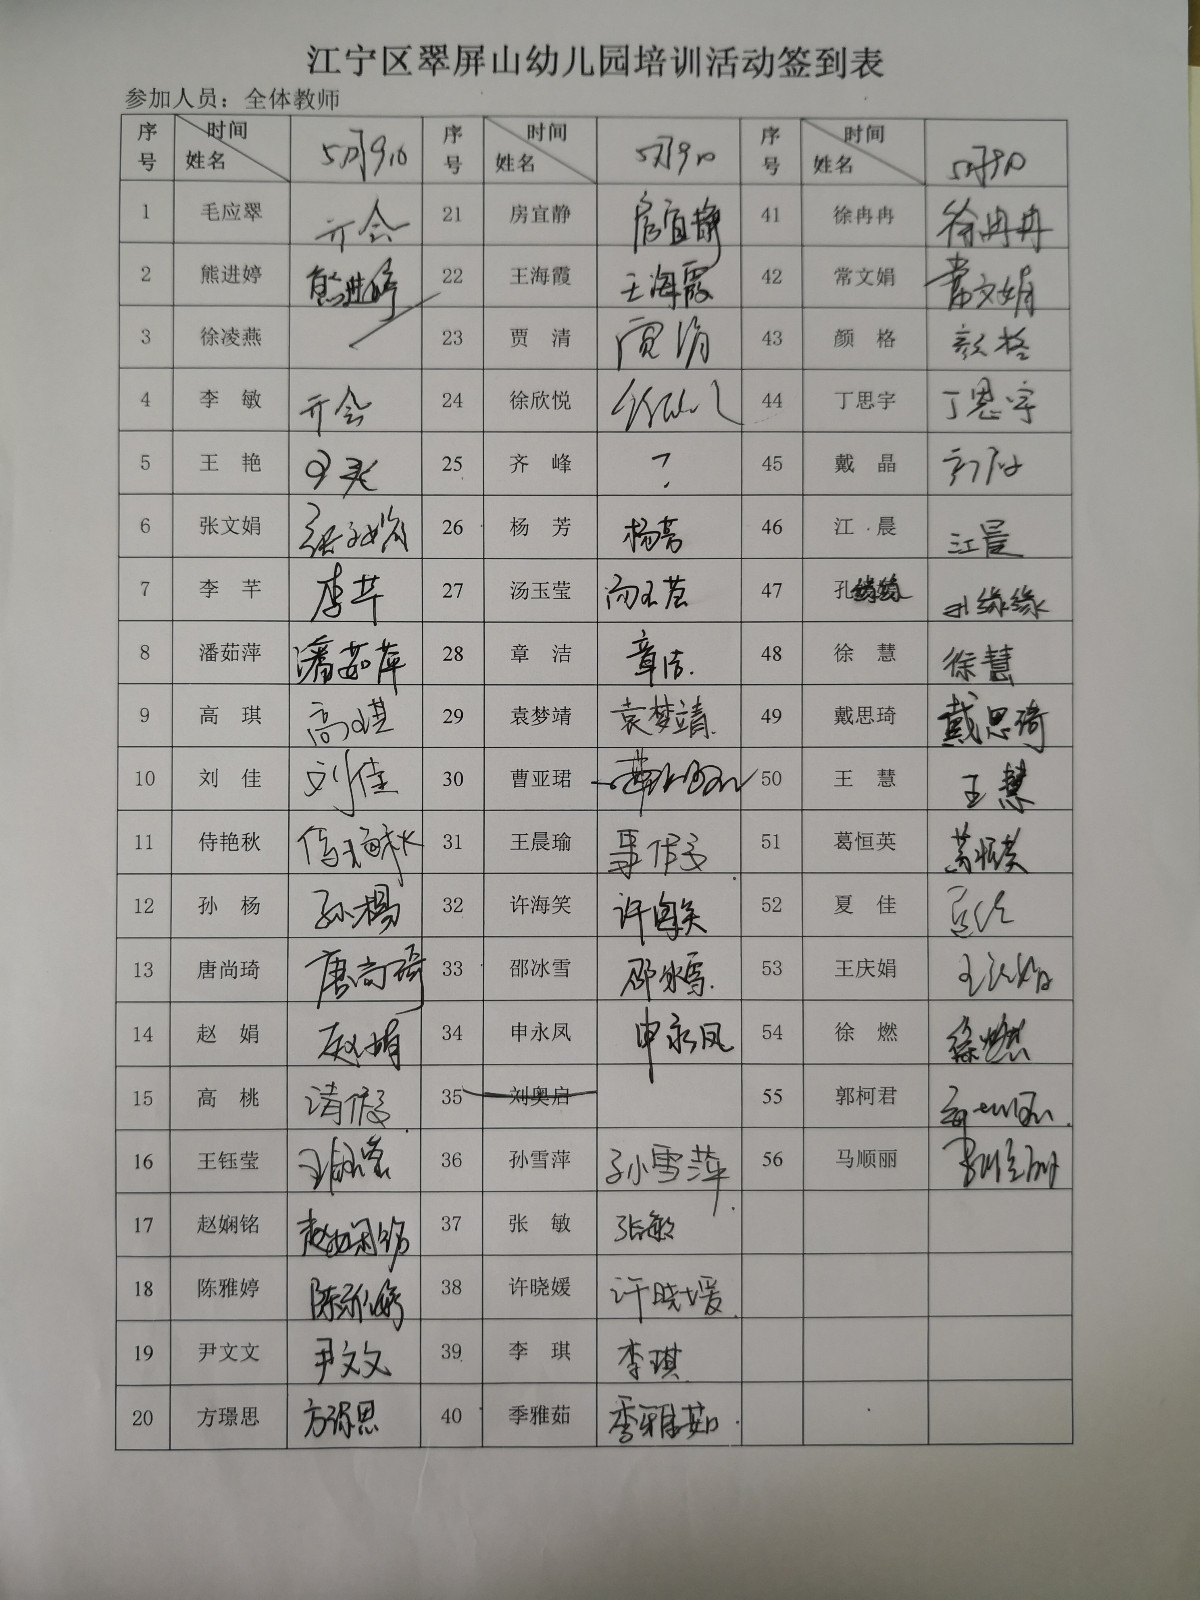 江宁区翠屏山幼儿园培训活动签到表
参加人员：全体教师
序号 时间 姓名 5月9日 序号 时间 姓名 5月9日 序号 时间 姓名 5月9日
1 毛应翠 开会 21 房宜静 房宜静 41 徐冉冉 徐冉冉
2 熊进婷 熊进婷 22 王海霞 王海霞 42 常文娟 常文娟
3 徐凌燕 23 贾清 贾清 43 颜格 颜格
4 李敏 开会 24 徐欣悦 44 丁思宇 丁思宇
5 王艳 王艳 25 齐峰 45 戴晶
6 张文娟 张文娟 26 杨芳 杨芳 46 江晨 江晨
7 李芊 李芊 27 汤玉莹 汤玉莹 47 孔缘缘 孔缘缘
8 潘茹萍 潘茹萍 28 章洁 章洁 48 徐慧 徐慧
9 高琪 高琪 29 袁梦靖 袁梦靖 49 戴思琦 戴思琦
10 刘佳 刘佳 30 曹亚珺 50 王慧 王慧
11 侍艳秋 侍艳秋 31 王晨瑜 事假 51 葛恒英 葛恒英
12 孙杨 孙杨 32 许海笑 许海笑 52 夏佳 夏佳
13 唐尚琦 唐尚琦 33 邵冰雪 邵冰雪 53 王庆娟 王庆娟
14 赵娟 赵娟 34 申永凤 申永凤 54 徐燃 徐燃
15 高桃 请假 35 刘奥启 55 郭柯君
16 王钰莹 王钰莹 36 孙雪萍 孙雪萍 56 马顺丽
17 赵娴铭 赵娴铭 37 张敏 张敏
18 陈雅婷 陈雅婷 38 许晓媛 许晓媛
19 尹文文 尹文文 39 李琪 李琪
20 方璟思 方璟思 40 季雅茹 季雅茹